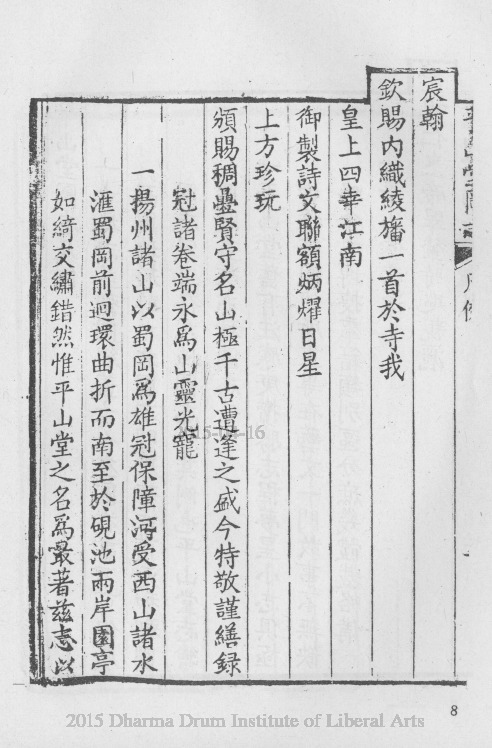 宸翰
欽賜內織綾旛一首於寺我
皇上四幸江南
御製詩文聯額炳燿日星
上方珍玩
頒賜稠疊賢守名山極千古遭逢之盛今特敬謹繕錄
冠諸卷端永為山靈光寵
一揚州諸山以蜀岡為雄冠保障河受西山諸水
滙蜀岡前迴環曲折而南至於硯池兩岸園亭
如綺交繡錯然惟平山堂之名為最著茲志以
15-03-16
8
2015 Dharma Drum Institute of Liberal Arts